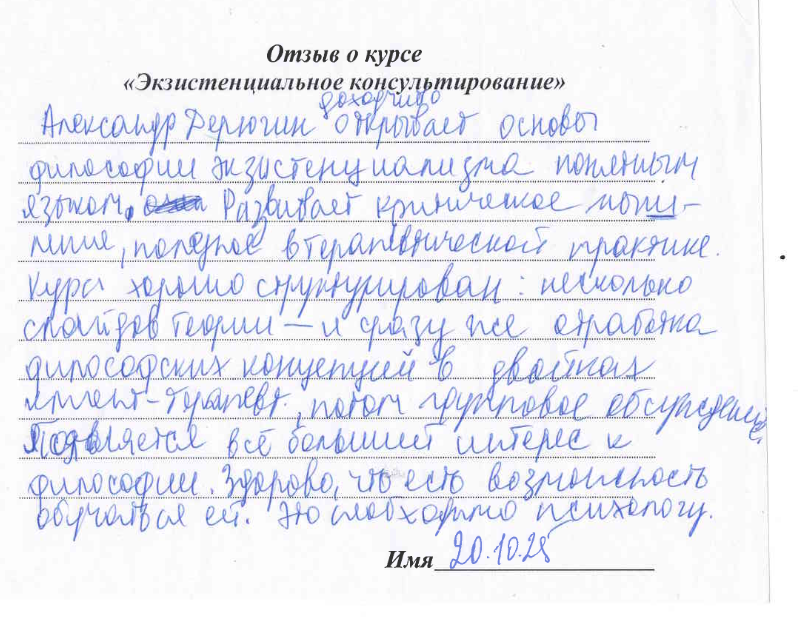 Отзыв о курсе
«Экзистенциальное консультирование»
доходчиво
Александр Дерюгин открывает основы
философии экзистенциализма понятным
языком. Развивает критическое мыш-
ление, полезное в терапевтической практике.
Курс хорошо структурирован: несколько
слайдов теории — и сразу же отработка
философских концепций в двойках
клиент-терапевт, потом групповое обсуждение.
Появляется всё больший интерес к
философии. Здорово, что есть возможность
обучаться ей. Это необходимо психологу.
Имя 20.10.25